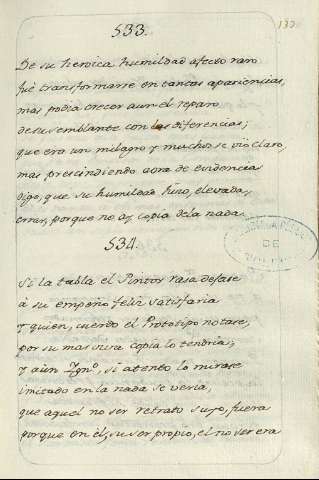 533.
132
De su heroica humildad afecto raro
fuè transformarse en tantas apariencias,
mas podia crecer aun el reparo
de su semblante con las diferencias;
que era un milagro y muchos se viò claro,
mas prescindiendo aora de evidencia
digo, que su humildad hizo, elevada,
errar, porque no ay copia dela nada.
534.
Si la tabla el Pintor rasa dexase
à su empeño feliz satisfaria
y quien, cuerdo el Prototipo notase,
por su mas cura copia lo tendria;
y aùn Ygnº, si atento lo mirase
imitado en la nada se veria,
que aquel no ser retrato suyo, fuera
porque en èl, su ser propio, el no ser era
DE